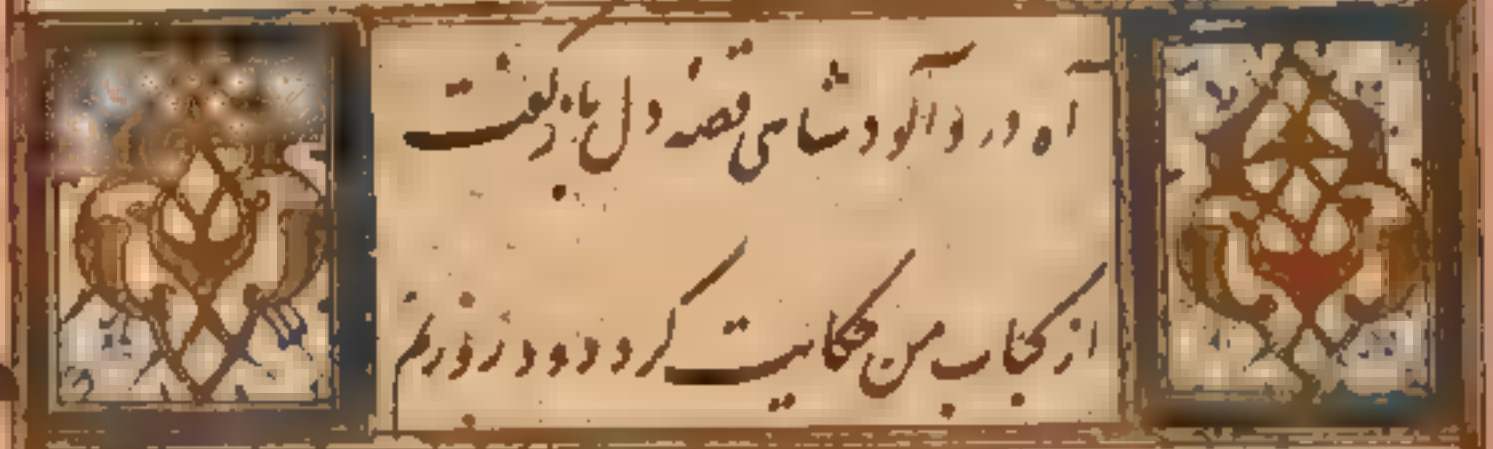 آه درد آلود شاهی قصهٔ دل باز گفت
از کباب من حکایت کرد دود روزنم